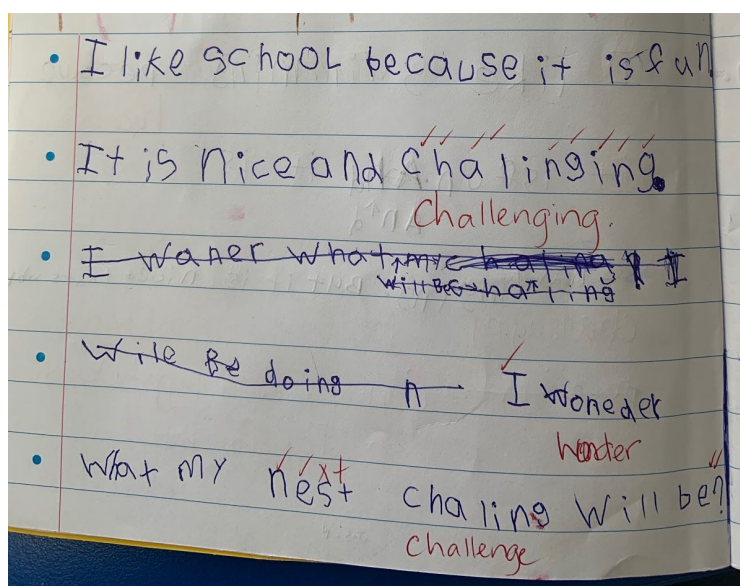 I like school because it is fun
It is nice and chalinging.
Challenging.
I waner what my
will Be
Wile Be doing n I woneder
Wonder
What my nest chaling will be?
xt
challenge